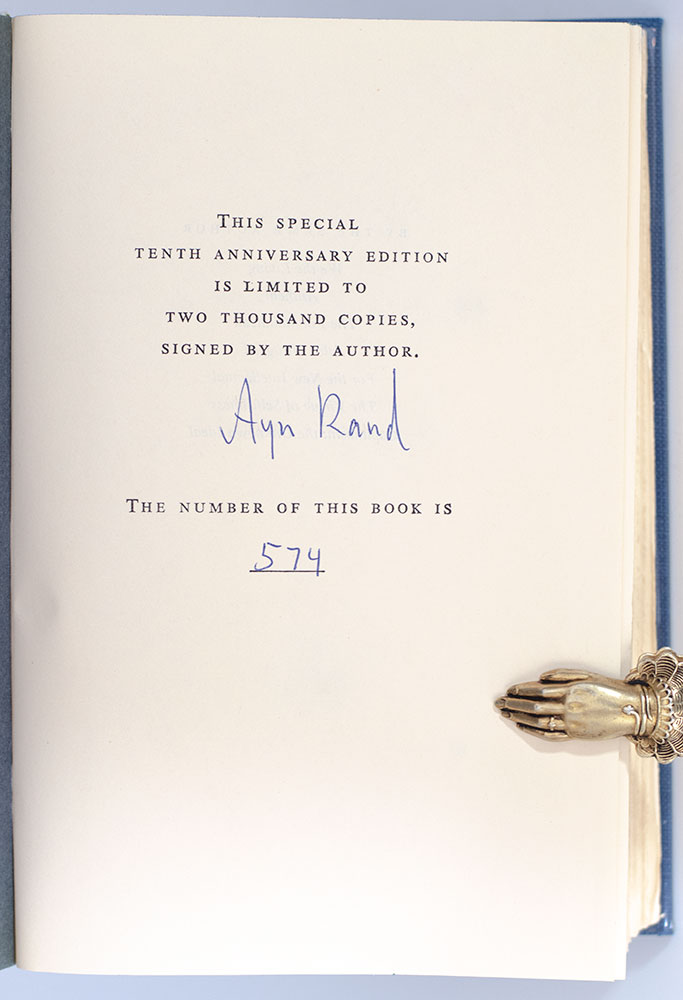 THIS SPECIAL
TENTH ANNIVERSARY EDITION
IS LIMITED TO
TWO THOUSAND COPIES,
SIGNED BY THE AUTHOR.
Ayn Rand
THE NUMBER OF THIS BOOK IS
574